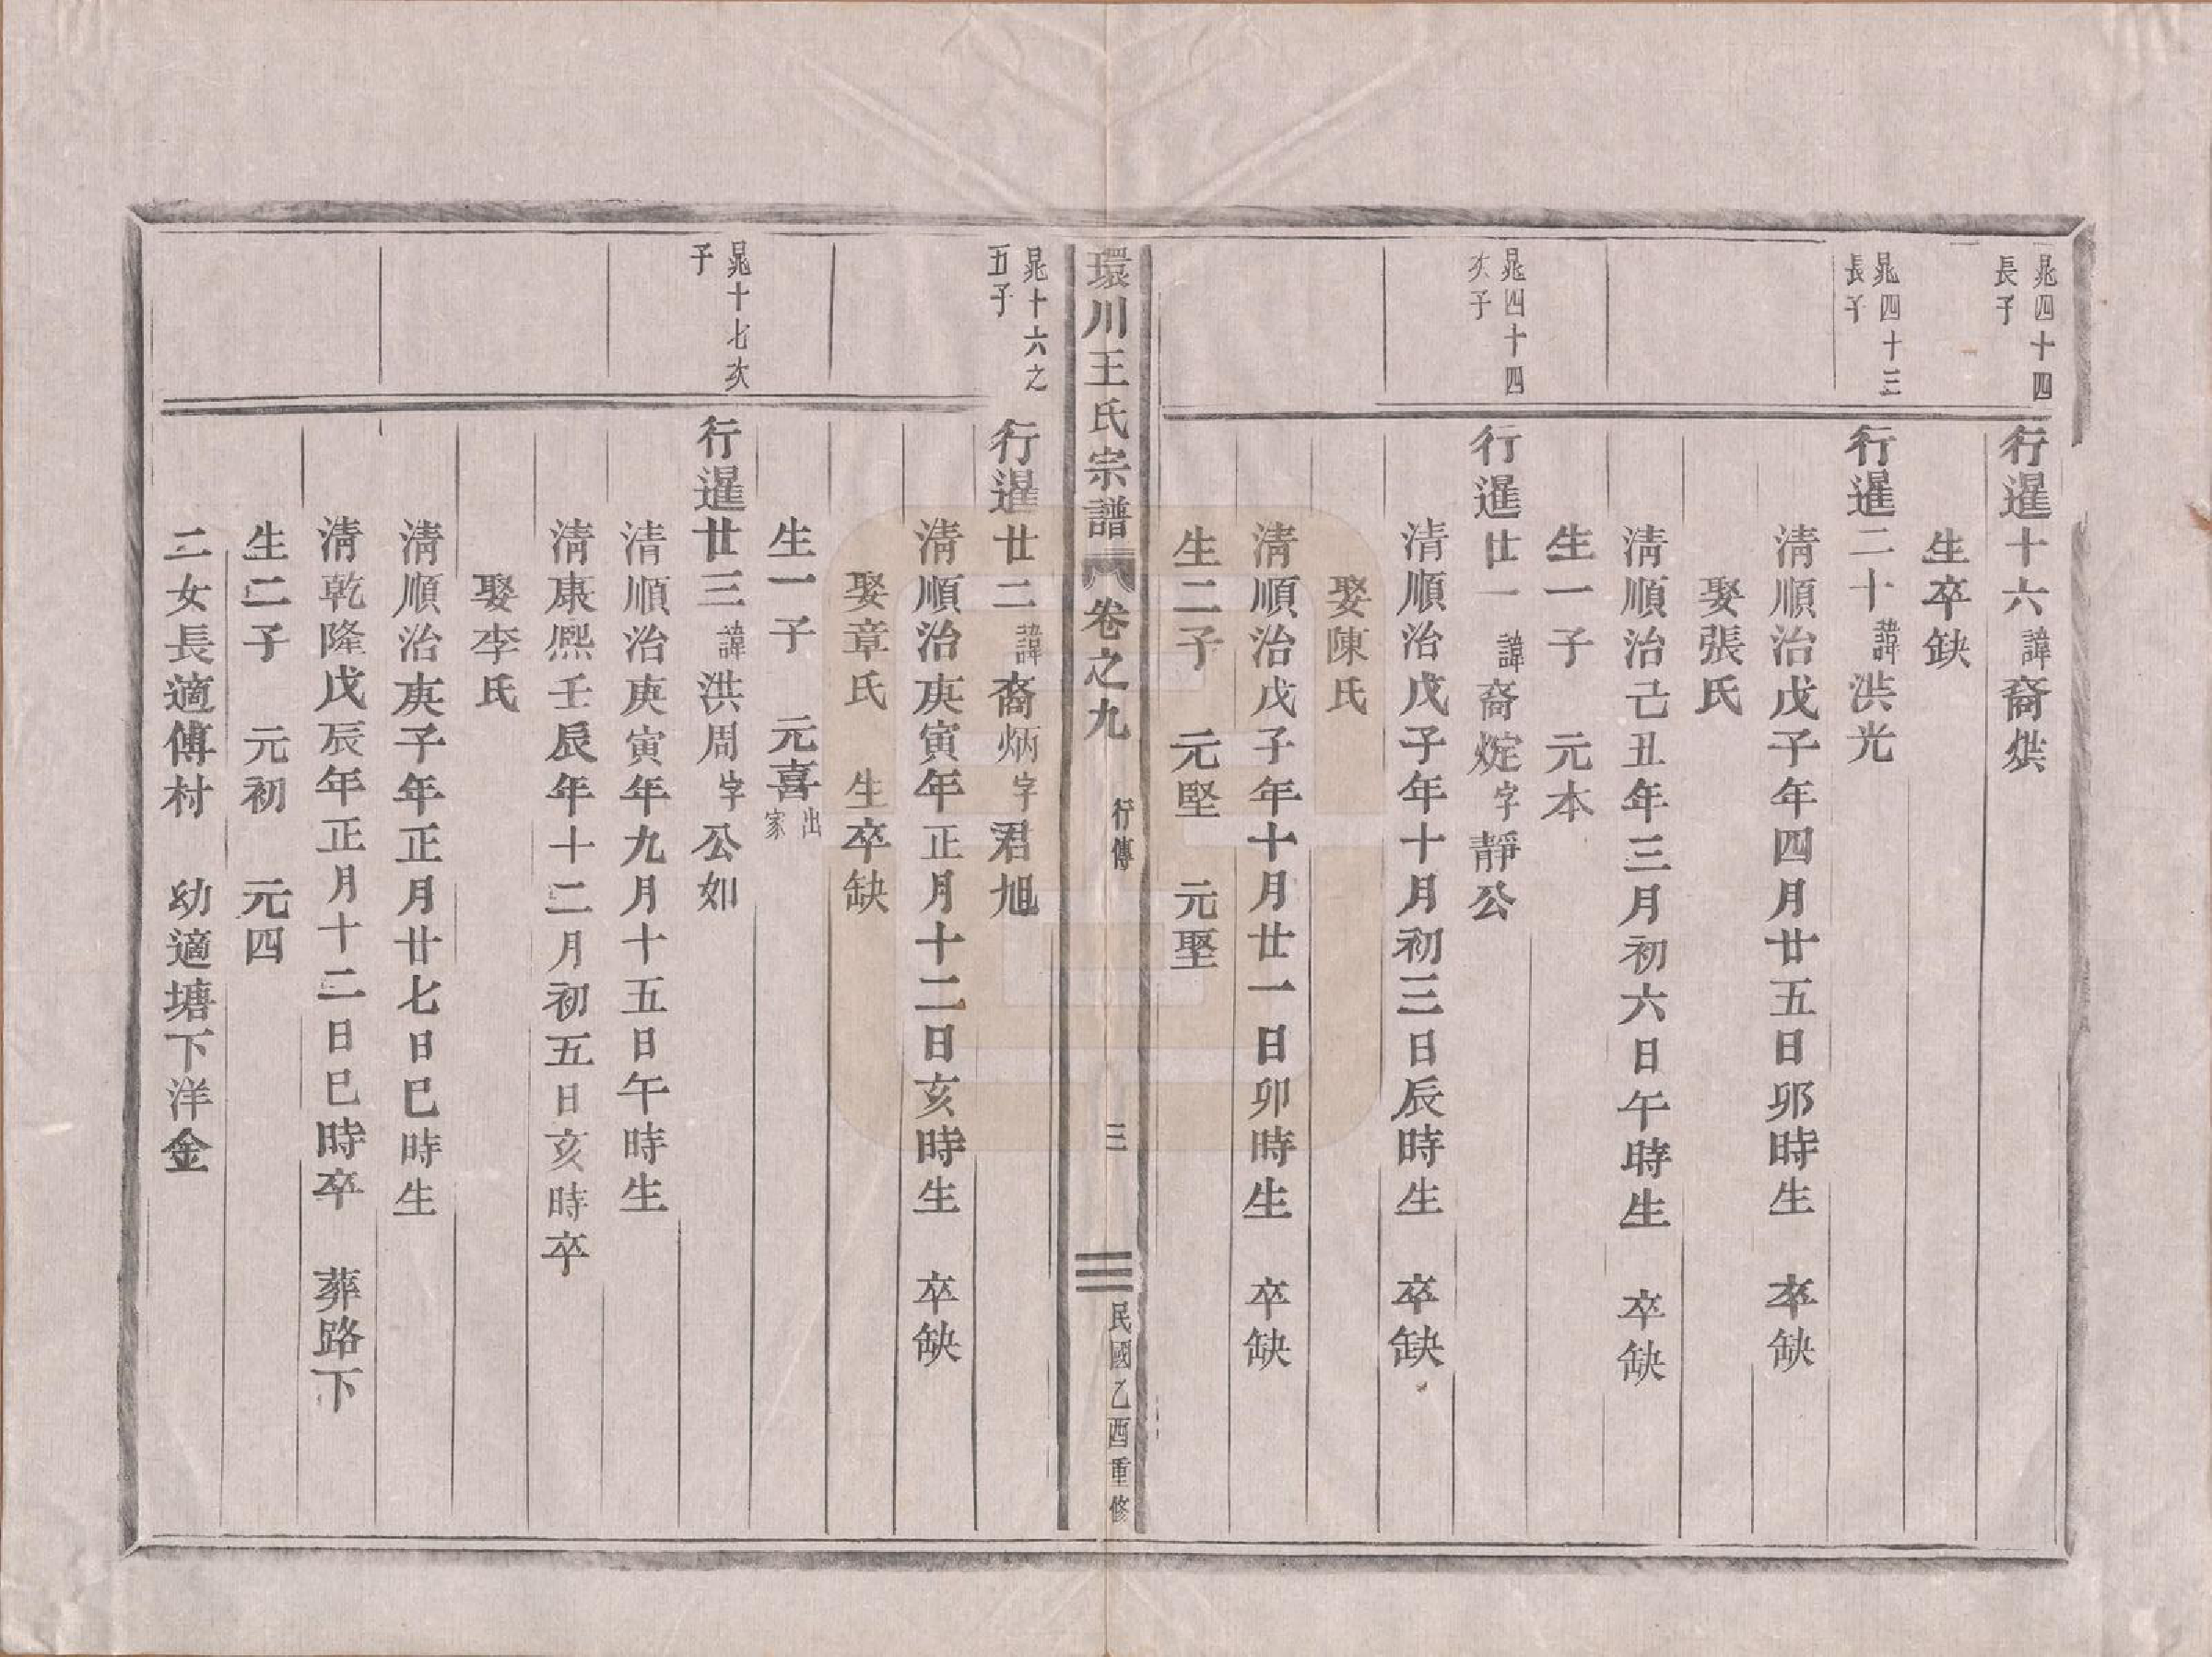 晁四十四
長子
行暹十六諱裔烘
生卒缺
晁四十三
長子
行暹二十諱洪光
清順治戊子年四月廿五日卯時生　卒缺
娶張氏
清順治己丑年三月初六日午時生　卒缺
生一子　元本
晁四十四
次子
行暹廿一諱裔烶字靜公
清順治戊子年十月初三日辰時生　卒缺
娶陳氏
清順治戊子年十月廿一日卯時生　卒缺
生二子　元堅　元聖
環川王氏宗譜　卷之九　行傳　三　民國乙酉重修
晁十六之
五子
行暹廿二諱裔炳字君旭
清順治庚寅年正月十二日亥時生　卒缺
娶章氏　生卒缺
生一子　元喜出家
晁十七次
子
行暹廿三諱洪周字公如
清順治庚寅年九月十五日午時生
清康熙壬辰年十二月初五日亥時卒
娶李氏
清順治庚子年正月廿七日巳時生
清乾隆戊辰年正月十二日巳時卒　葬路下
生二子　元初　元四
二女長適傅村　幼適塘下洋金